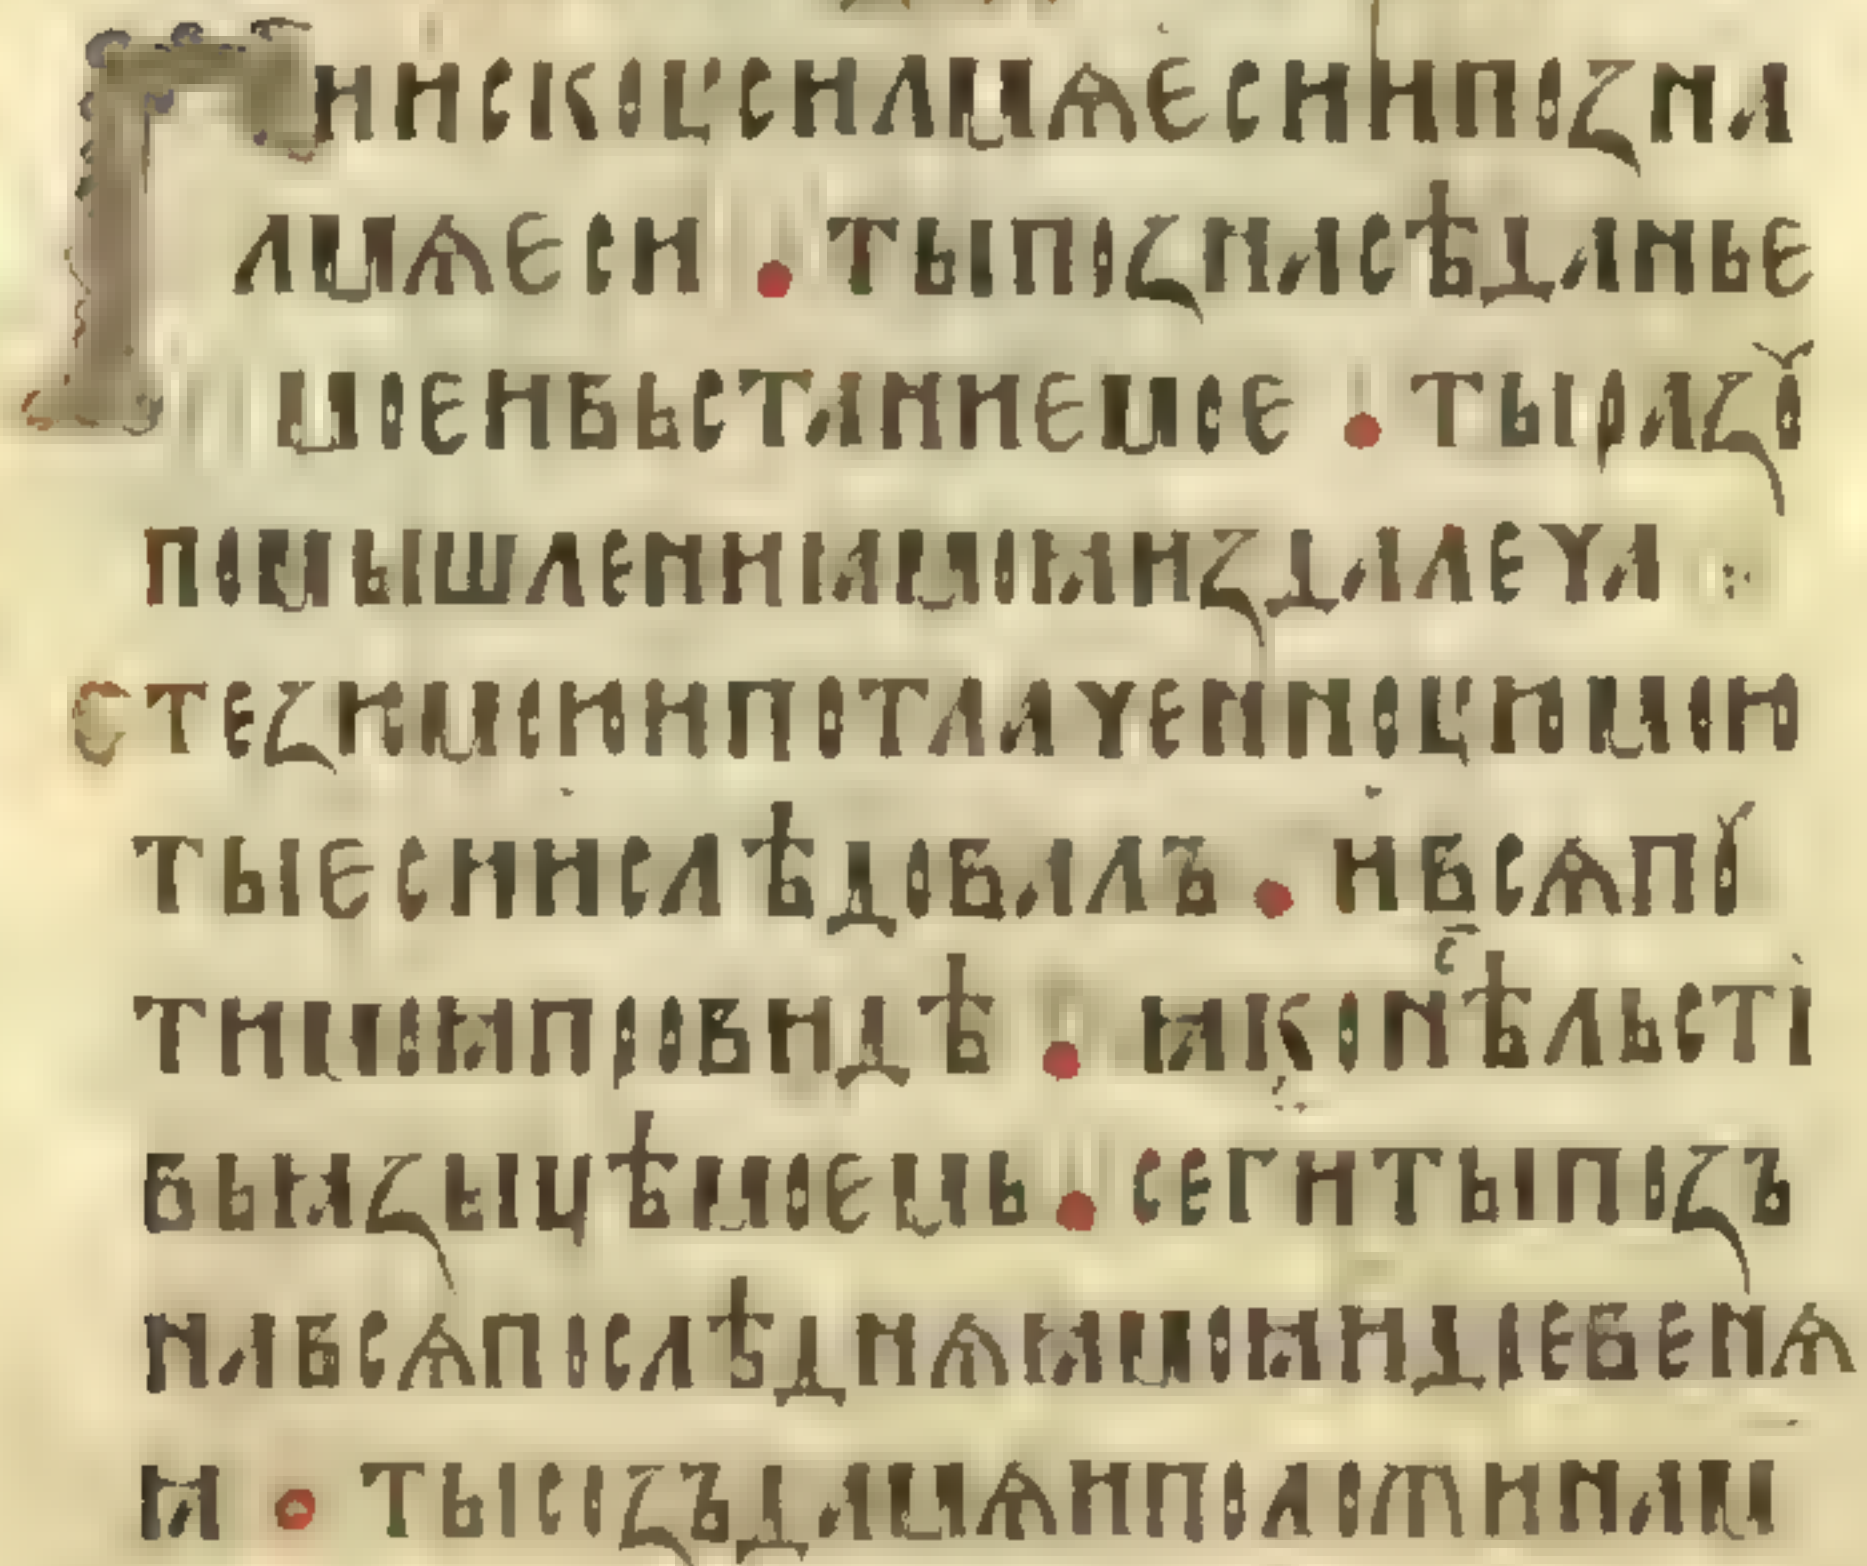 ГИИСКОУСИЛМѦЄСИИПОЗНА
ЛМѦЄСИ · ТЫПОЗНАСѢДАНЬЄ
МОЄИВЬСТАНИЄМОЄ · ТЫРАЗꙊ
ПОМЫШЛЕНИꙖМОꙖИЗДАЛЕЧА :·
СТЕЗИМОЮИПОТААЧЕННОУЮМОЮ
ТЫЄСИИСЛѢДОВАЛЪ · ИВСѦПꙊ
ТИМОꙖПРОВИДѢ · ꙖКОНѢⷭ҇ЛЬСТІ
ВЬꙖЗЫЦѢМОЄМЬ · СЕГИТЫПОЗЪ
НАВСѦПОСЛѢДНѦꙖМОꙖИДРЕВЕНѦ
Ꙗ · ТЫСОЗЪДАМѦИПОЛОЖИНАМ